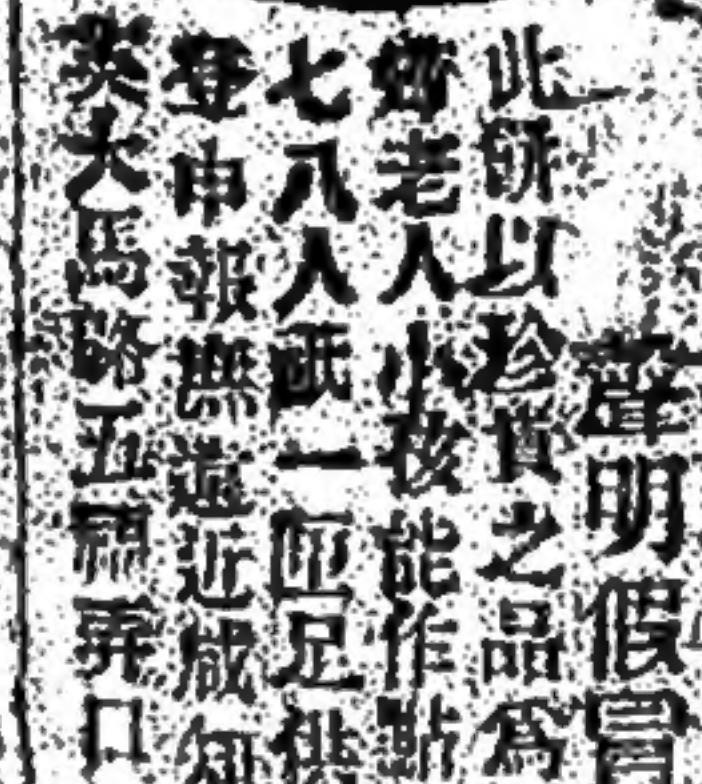 聲明假冒
此餅以珍貴之品爲
老人小孩能作點
七八人祇一匣足供
登申報無遠近咸知
英大馬路五福弄口